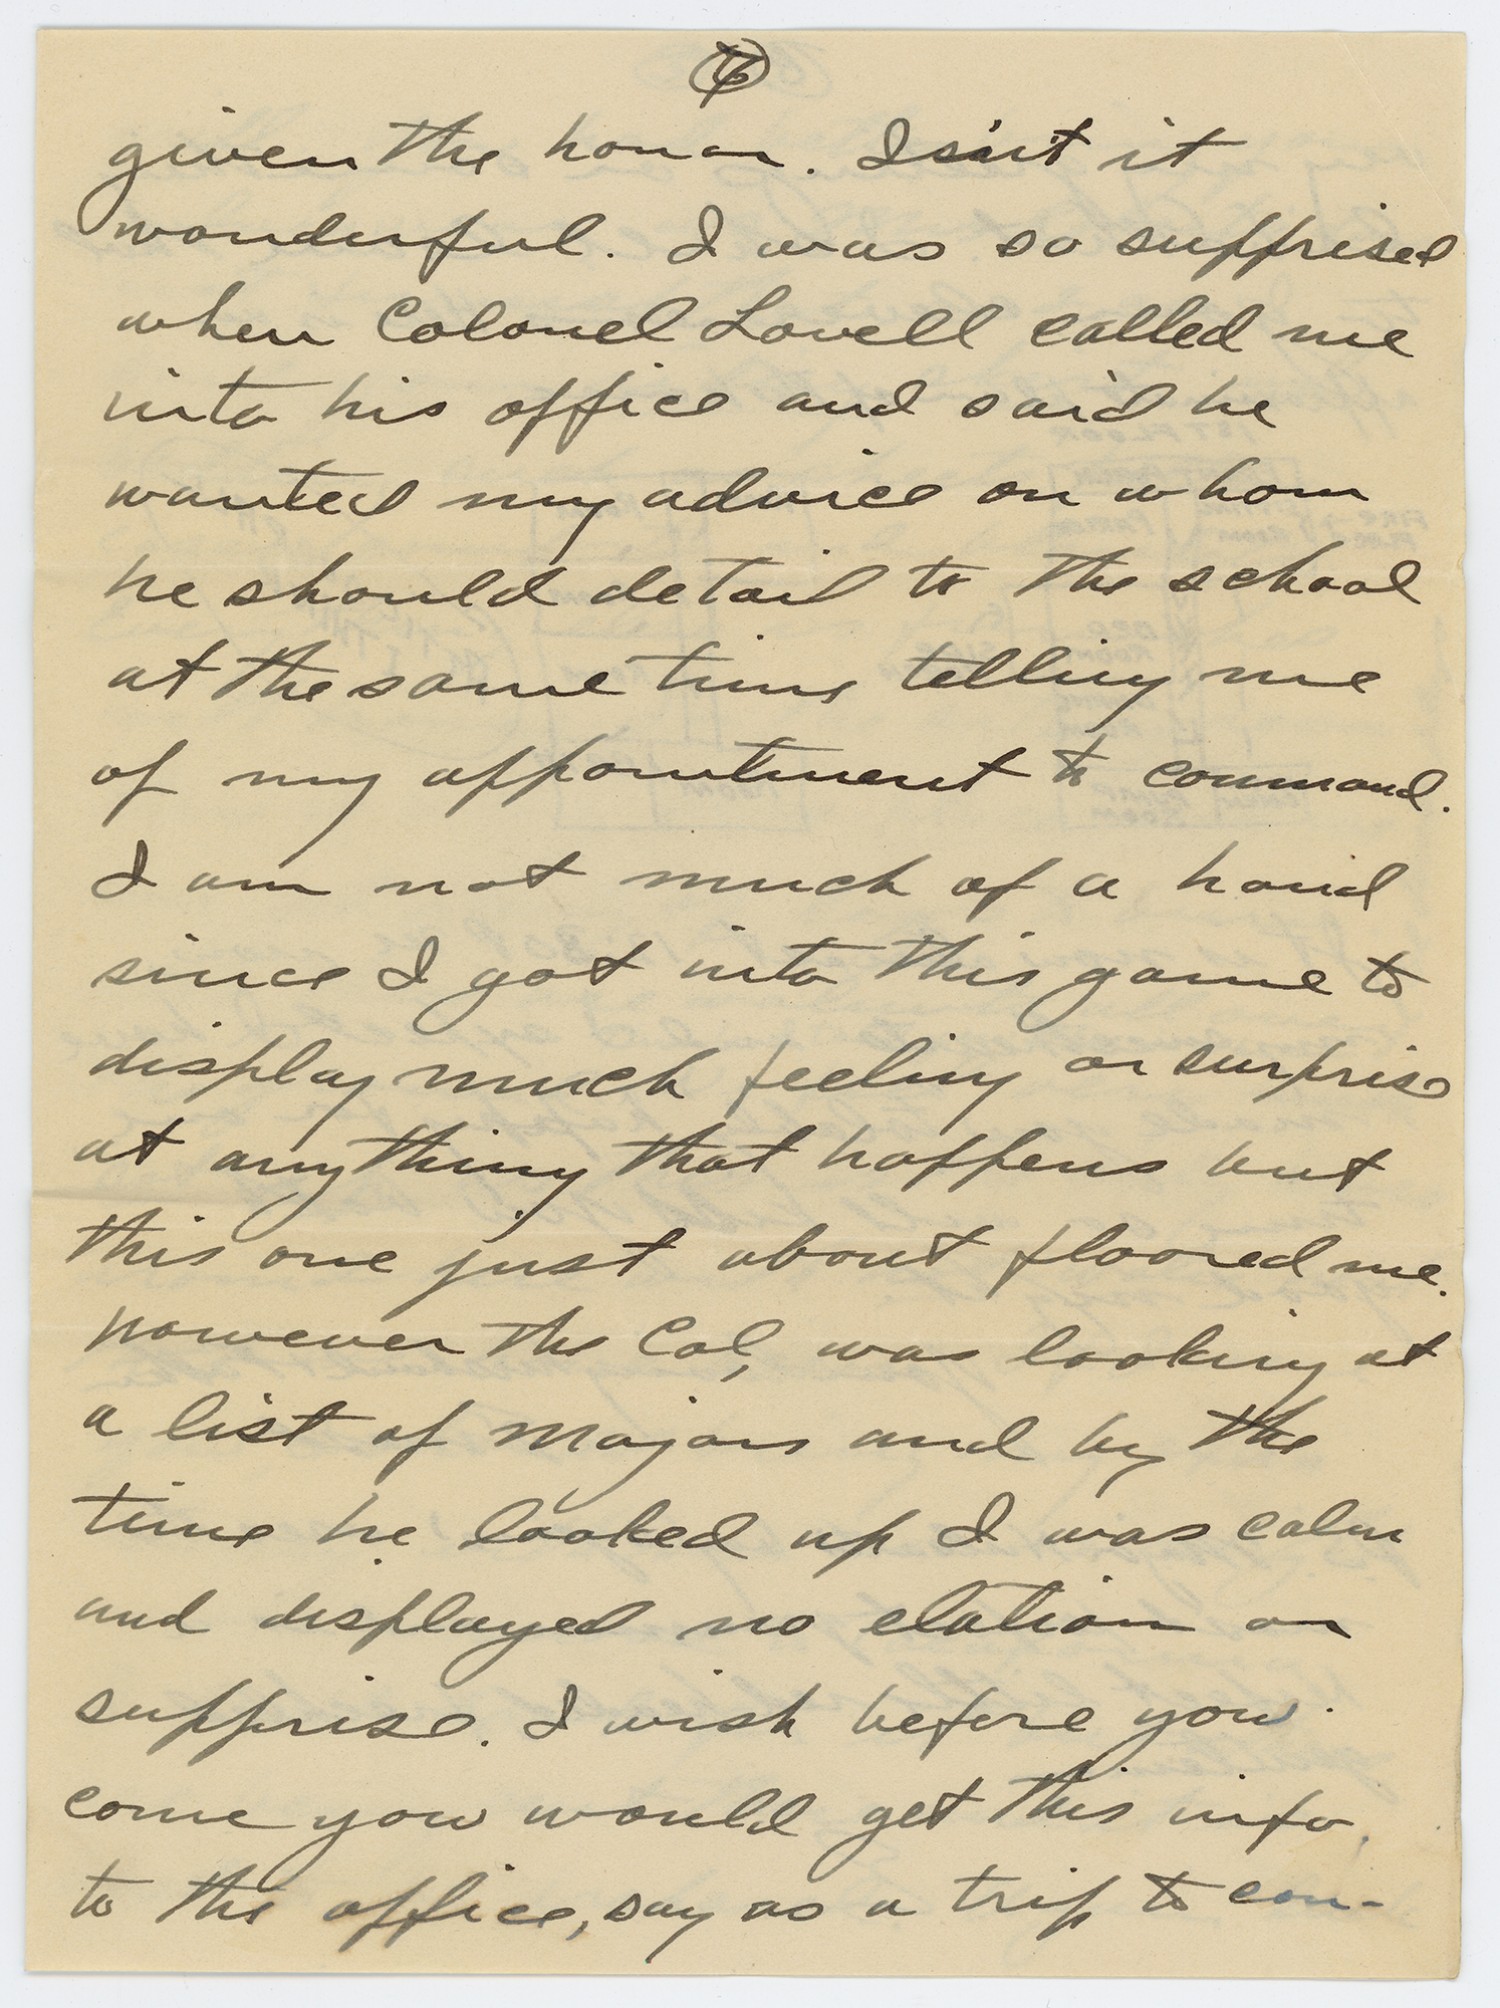 given the honor. Isn't it
wonderful. I was so supprised
when Colonel Lovell called me
into his office and said he
wanted my advice on whom
he should detail to the school
at the same time telling me
of my appointment to command.
I am not much of a hand
since I got into this game to
display much feeling or surprise
at anything that happens but
this one just about floored me.
however the Col, was looking at
a list of Majors and by the
time he looked up I was calm
and displayed no elation or
supprise. I wish before you
come you would get this info,
to the office, say as a trip to con-